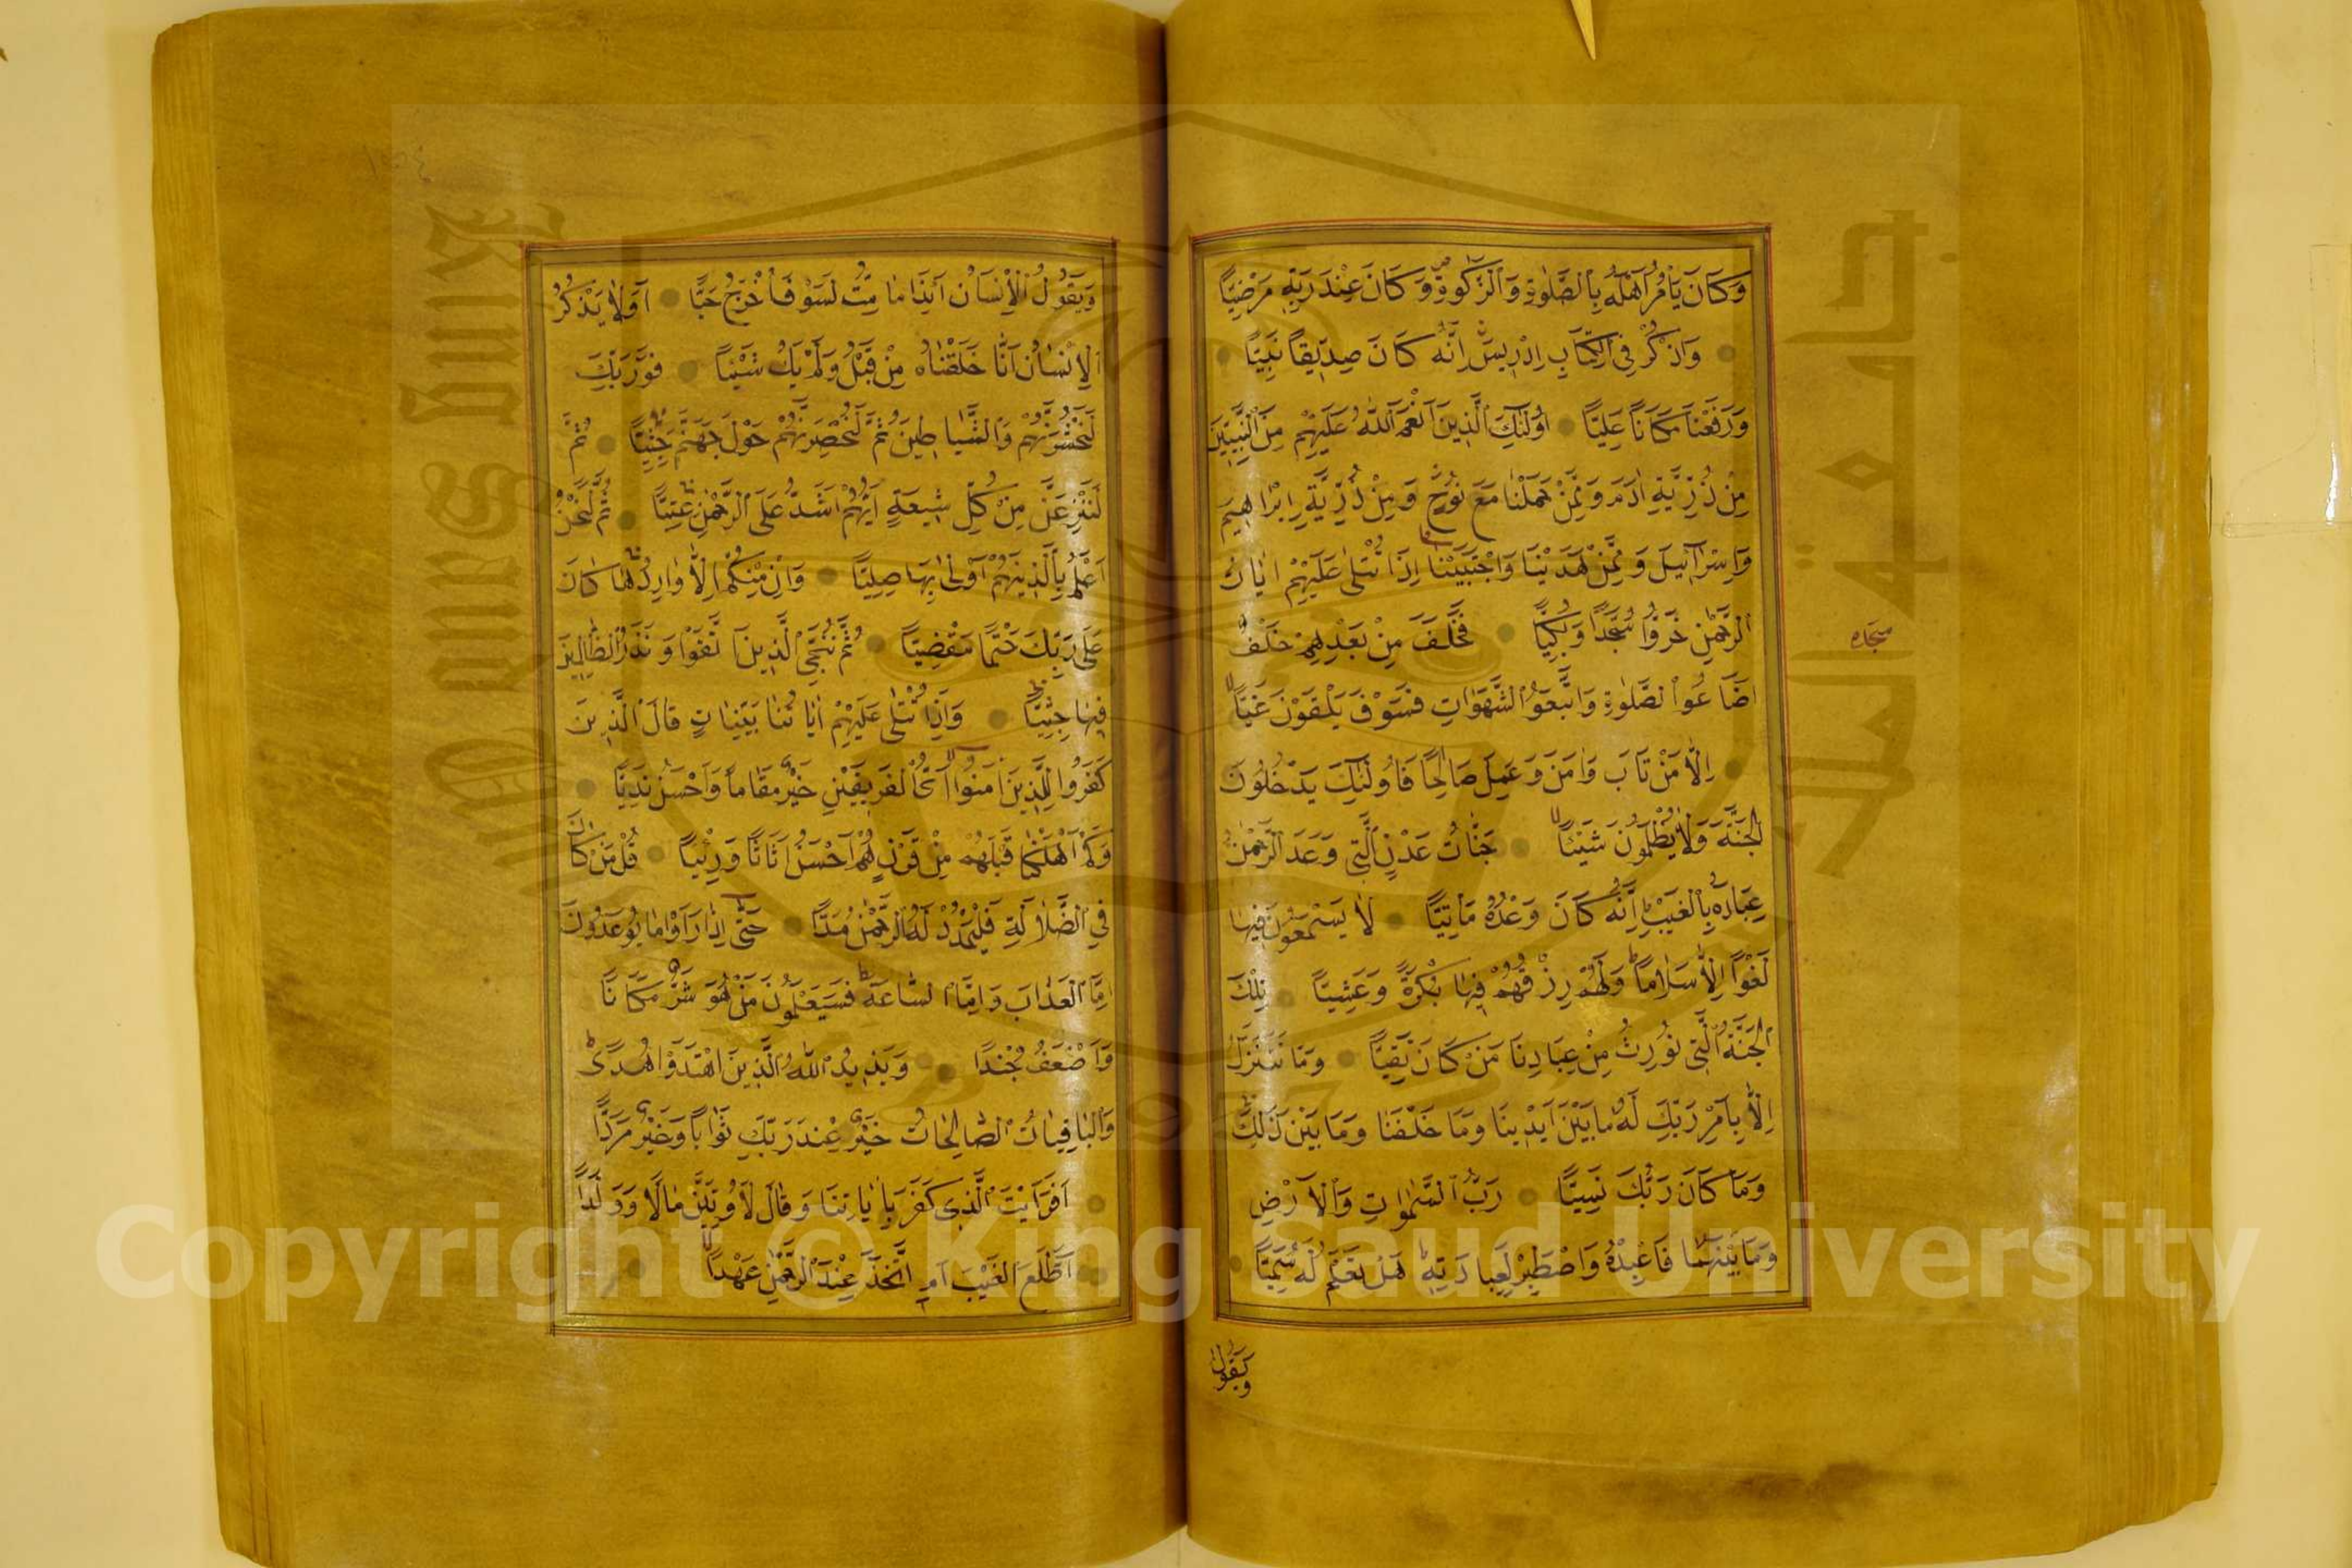 وَكَانَ يَأْمُرُ اَهْلَهُ بِالصَّلٰوةِ وَالزَّكٰوةِ وَكَانَ عِنْدَ رَبِّهِ مَرْضِيًّا
وَاذْكُرْ فِى الْكِتَابِ اِدْرِيسَ اِنَّهُ كَانَ صِدِّيقًا نَبِيًّا
وَرَفَعْنَا مَكَانًا عَلِيًّا اُولٰئِكَ الَّذِينَ اَنْعَمَ اللّٰهُ عَلَيْهِمْ مِنَ النَّبِيِّينَ
مِنْ ذُرِّيَّةِ اٰدَمَ وَمِمَّنْ حَمَلْنَا مَعَ نُوحٍ وَمِنْ ذُرِّيَّةِ اِبْرَاهِيمَ
وَاِسْرَآئِيلَ وَمِمَّنْ هَدَيْنَا وَاجْتَبَيْنَا اِذَا تُتْلٰى عَلَيْهِمْ اٰيَاتُ
الرَّحْمٰنِ خَرُّوا سُجَّدًا وَبُكِيًّا فَخَلَفَ مِنْ بَعْدِهِمْ خَلْفٌ
سجده
اَضَاعُوا الصَّلٰوةَ وَاتَّبَعُوا الشَّهَوَاتِ فَسَوْفَ يَلْقَوْنَ غَيًّا
اِلَّا مَنْ تَابَ وَاٰمَنَ وَعَمِلَ صَالِحًا فَاُولٰئِكَ يَدْخُلُونَ
الْجَنَّةَ وَلَا يُظْلَمُونَ شَيْئًا جَنَّاتُ عَدْنٍ الَّتِى وَعَدَ الرَّحْمٰنُ
عِبَادَهُ بِالْغَيْبِ اِنَّهُ كَانَ وَعْدُهُ مَأْتِيًّا لَا يَسْمَعُونَ فِيهَا
لَغْوًا اِلَّا سَلَامًا وَلَهُمْ رِزْقُهُمْ فِيهَا بُكْرَةً وَعَشِيًّا تِلْكَ
الْجَنَّةُ الَّتِى نُورِثُ مِنْ عِبَادِنَا مَنْ كَانَ تَقِيًّا وَمَا نَتَنَزَّلُ
اِلَّا بِاَمْرِ رَبِّكَ لَهُ مَا بَيْنَ اَيْدِينَا وَمَا خَلْفَنَا وَمَا بَيْنَ ذٰلِكَ
وَمَا كَانَ رَبُّكَ نَسِيًّا رَبُّ السَّمٰوَاتِ وَالْاَرْضِ
وَمَا بَيْنَهُمَا فَاعْبُدْهُ وَاصْطَبِرْ لِعِبَادَتِهِ هَلْ تَعْلَمُ لَهُ سَمِيًّا
وَيَقُولُ
وَيَقُولُ الْاِنْسَانُ اَئِذَا مَا مِتُّ لَسَوْفَ اُخْرَجُ حَيًّا اَوَلَا يَذْكُرُ
الْاِنْسَانُ اَنَّا خَلَقْنَاهُ مِنْ قَبْلُ وَلَمْ يَكُ شَيْئًا فَوَرَبِّكَ
لَنَحْشُرَنَّهُمْ وَالشَّيَاطِينَ ثُمَّ لَنُحْضِرَنَّهُمْ حَوْلَ جَهَنَّمَ جِثِيًّا ثُمَّ
لَنَنْزِعَنَّ مِنْ كُلِّ شِيعَةٍ اَيُّهُمْ اَشَدُّ عَلَى الرَّحْمٰنِ عِتِيًّا ثُمَّ لَنَحْنُ
اَعْلَمُ بِالَّذِينَ هُمْ اَوْلٰى بِهَا صِلِيًّا وَاِنْ مِنْكُمْ اِلَّا وَارِدُهَا كَانَ
عَلٰى رَبِّكَ حَتْمًا مَقْضِيًّا ثُمَّ نُنَجِّى الَّذِينَ اتَّقَوْا وَنَذَرُ الظَّالِمِينَ
فِيهَا جِثِيًّا وَاِذَا تُتْلٰى عَلَيْهِمْ اٰيَاتُنَا بَيِّنَاتٍ قَالَ الَّذِينَ
كَفَرُوا لِلَّذِينَ اٰمَنُوا اَىُّ الْفَرِيقَيْنِ خَيْرٌ مَقَامًا وَاَحْسَنُ نَدِيًّا
وَكَمْ اَهْلَكْنَا قَبْلَهُمْ مِنْ قَرْنٍ هُمْ اَحْسَنُ اَثَاثًا وَرِئْيًا قُلْ مَنْ كَانَ
فِى الضَّلَالَةِ فَلْيَمْدُدْ لَهُ الرَّحْمٰنُ مَدًّا حَتّٰى اِذَا رَاَوْا مَا يُوعَدُونَ
اِمَّا الْعَذَابَ وَاِمَّا السَّاعَةَ فَسَيَعْلَمُونَ مَنْ هُوَ شَرٌّ مَكَانًا
وَاَضْعَفُ جُنْدًا وَيَزِيدُ اللّٰهُ الَّذِينَ اهْتَدَوْا هُدًى
وَالْبَاقِيَاتُ الصَّالِحَاتُ خَيْرٌ عِنْدَ رَبِّكَ ثَوَابًا وَخَيْرٌ مَرَدًّا
اَفَرَاَيْتَ الَّذِى كَفَرَ بِاٰيَاتِنَا وَقَالَ لَاُوتَيَنَّ مَالًا وَوَلَدًا
اَطَّلَعَ الْغَيْبَ اَمِ اتَّخَذَ عِنْدَ الرَّحْمٰنِ عَهْدًا
King Saud University
جامعة الملك
1957
Copyright © King Saud University